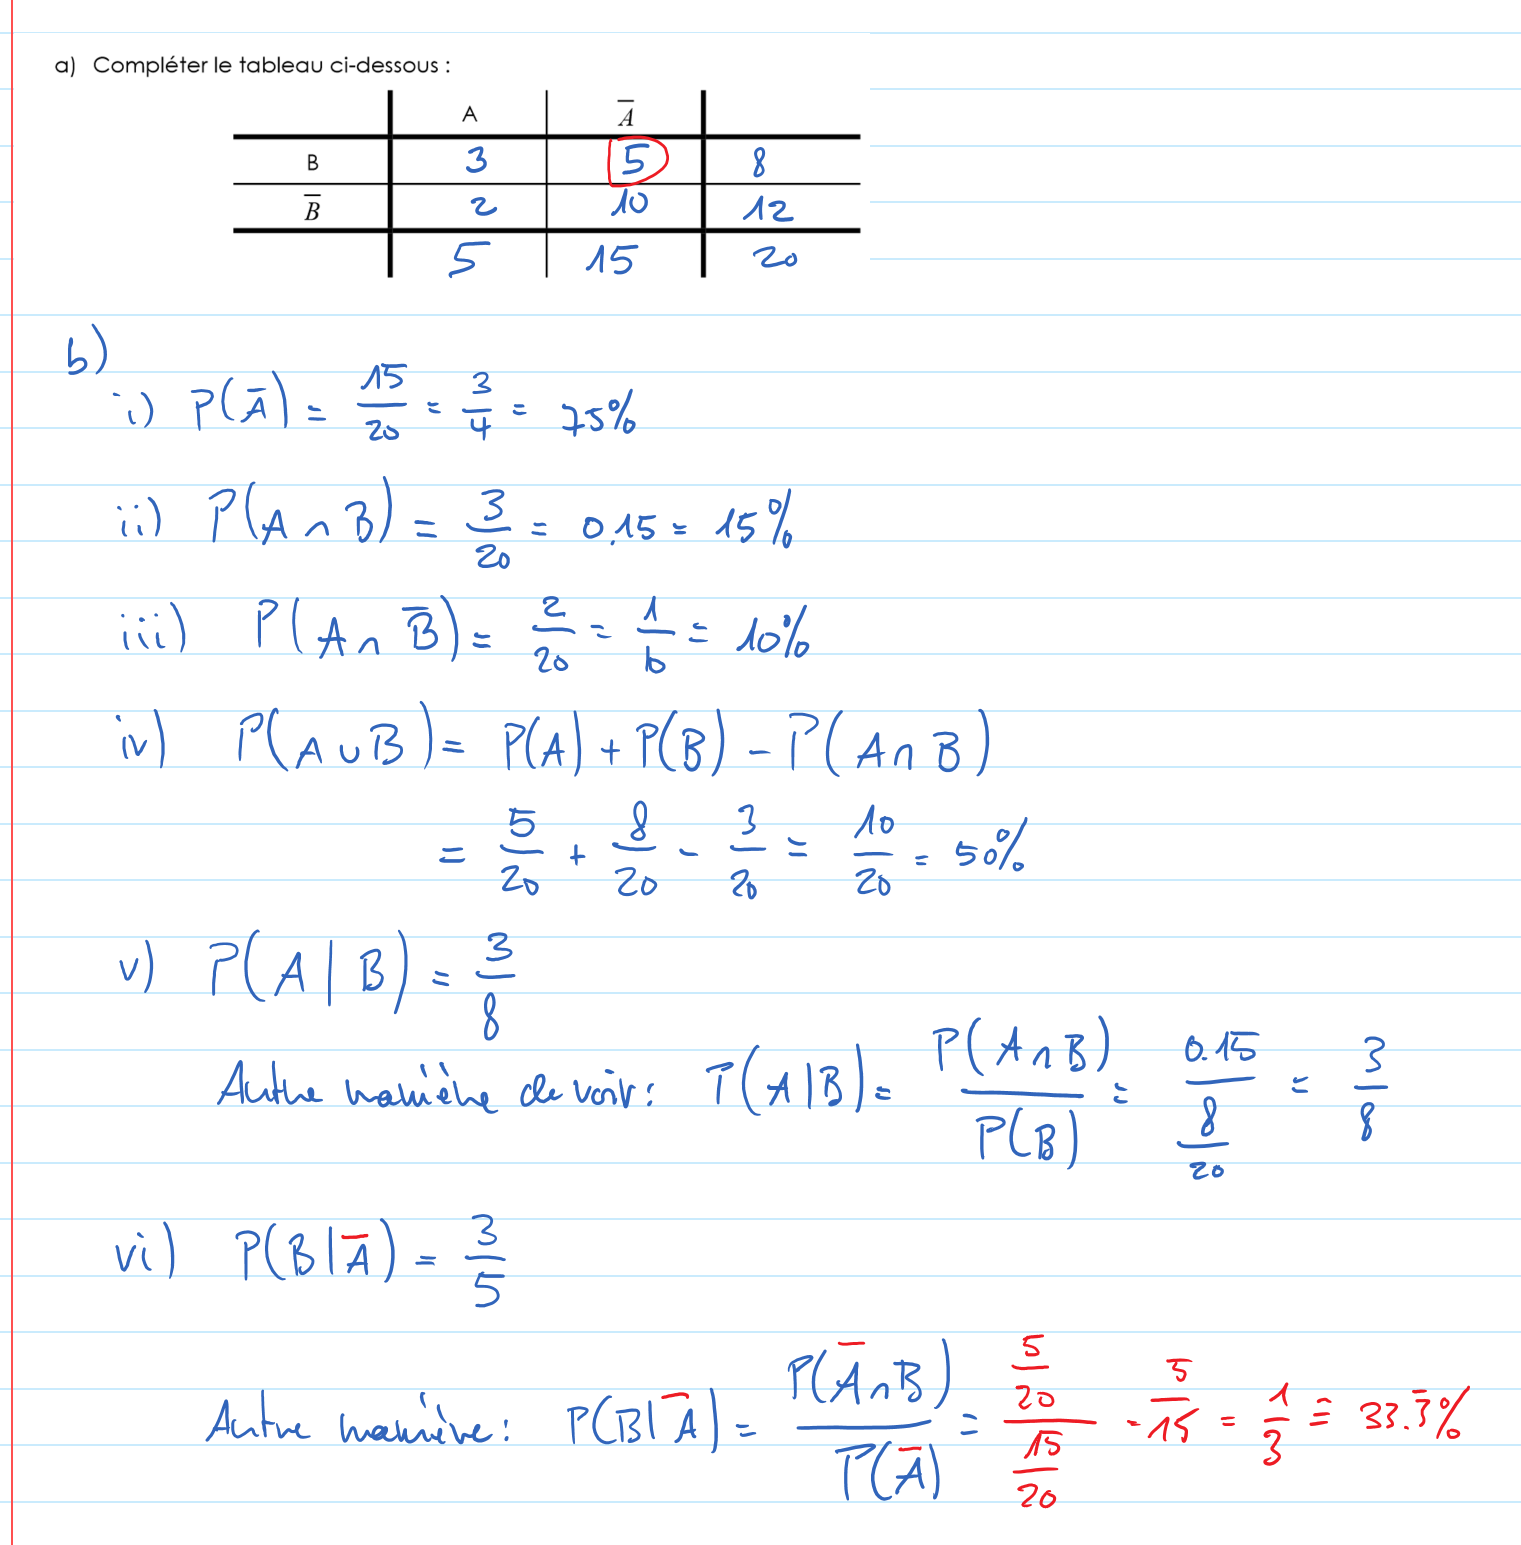 a) Compléter le tableau ci-dessous :
A A̅
B 3 5 8
B̅ 2 10 12
5 15 20
b)
i) P(A̅) = 15/20 = 3/4 = 75%
ii) P(A ∩ B) = 3/20 = 0.15 = 15%
iii) P(A ∩ B̅) = 2/20 = 1/10 = 10%
iv) P(A ∪ B) = P(A) + P(B) - P(A ∩ B)
= 5/20 + 8/20 - 3/20 = 10/20 = 50%
v) P(A | B) = 3/8
Autre manière de voir : P(A | B) = P(A ∩ B)/P(B) = 0.15/(8/20) = 3/8
vi) P(B | A̅) = 3/5
Autre manière : P(B | A̅) = P(A̅ ∩ B)/P(A̅) = (5/20)/(15/20) = 5/15 = 1/3 = 33.3̅%